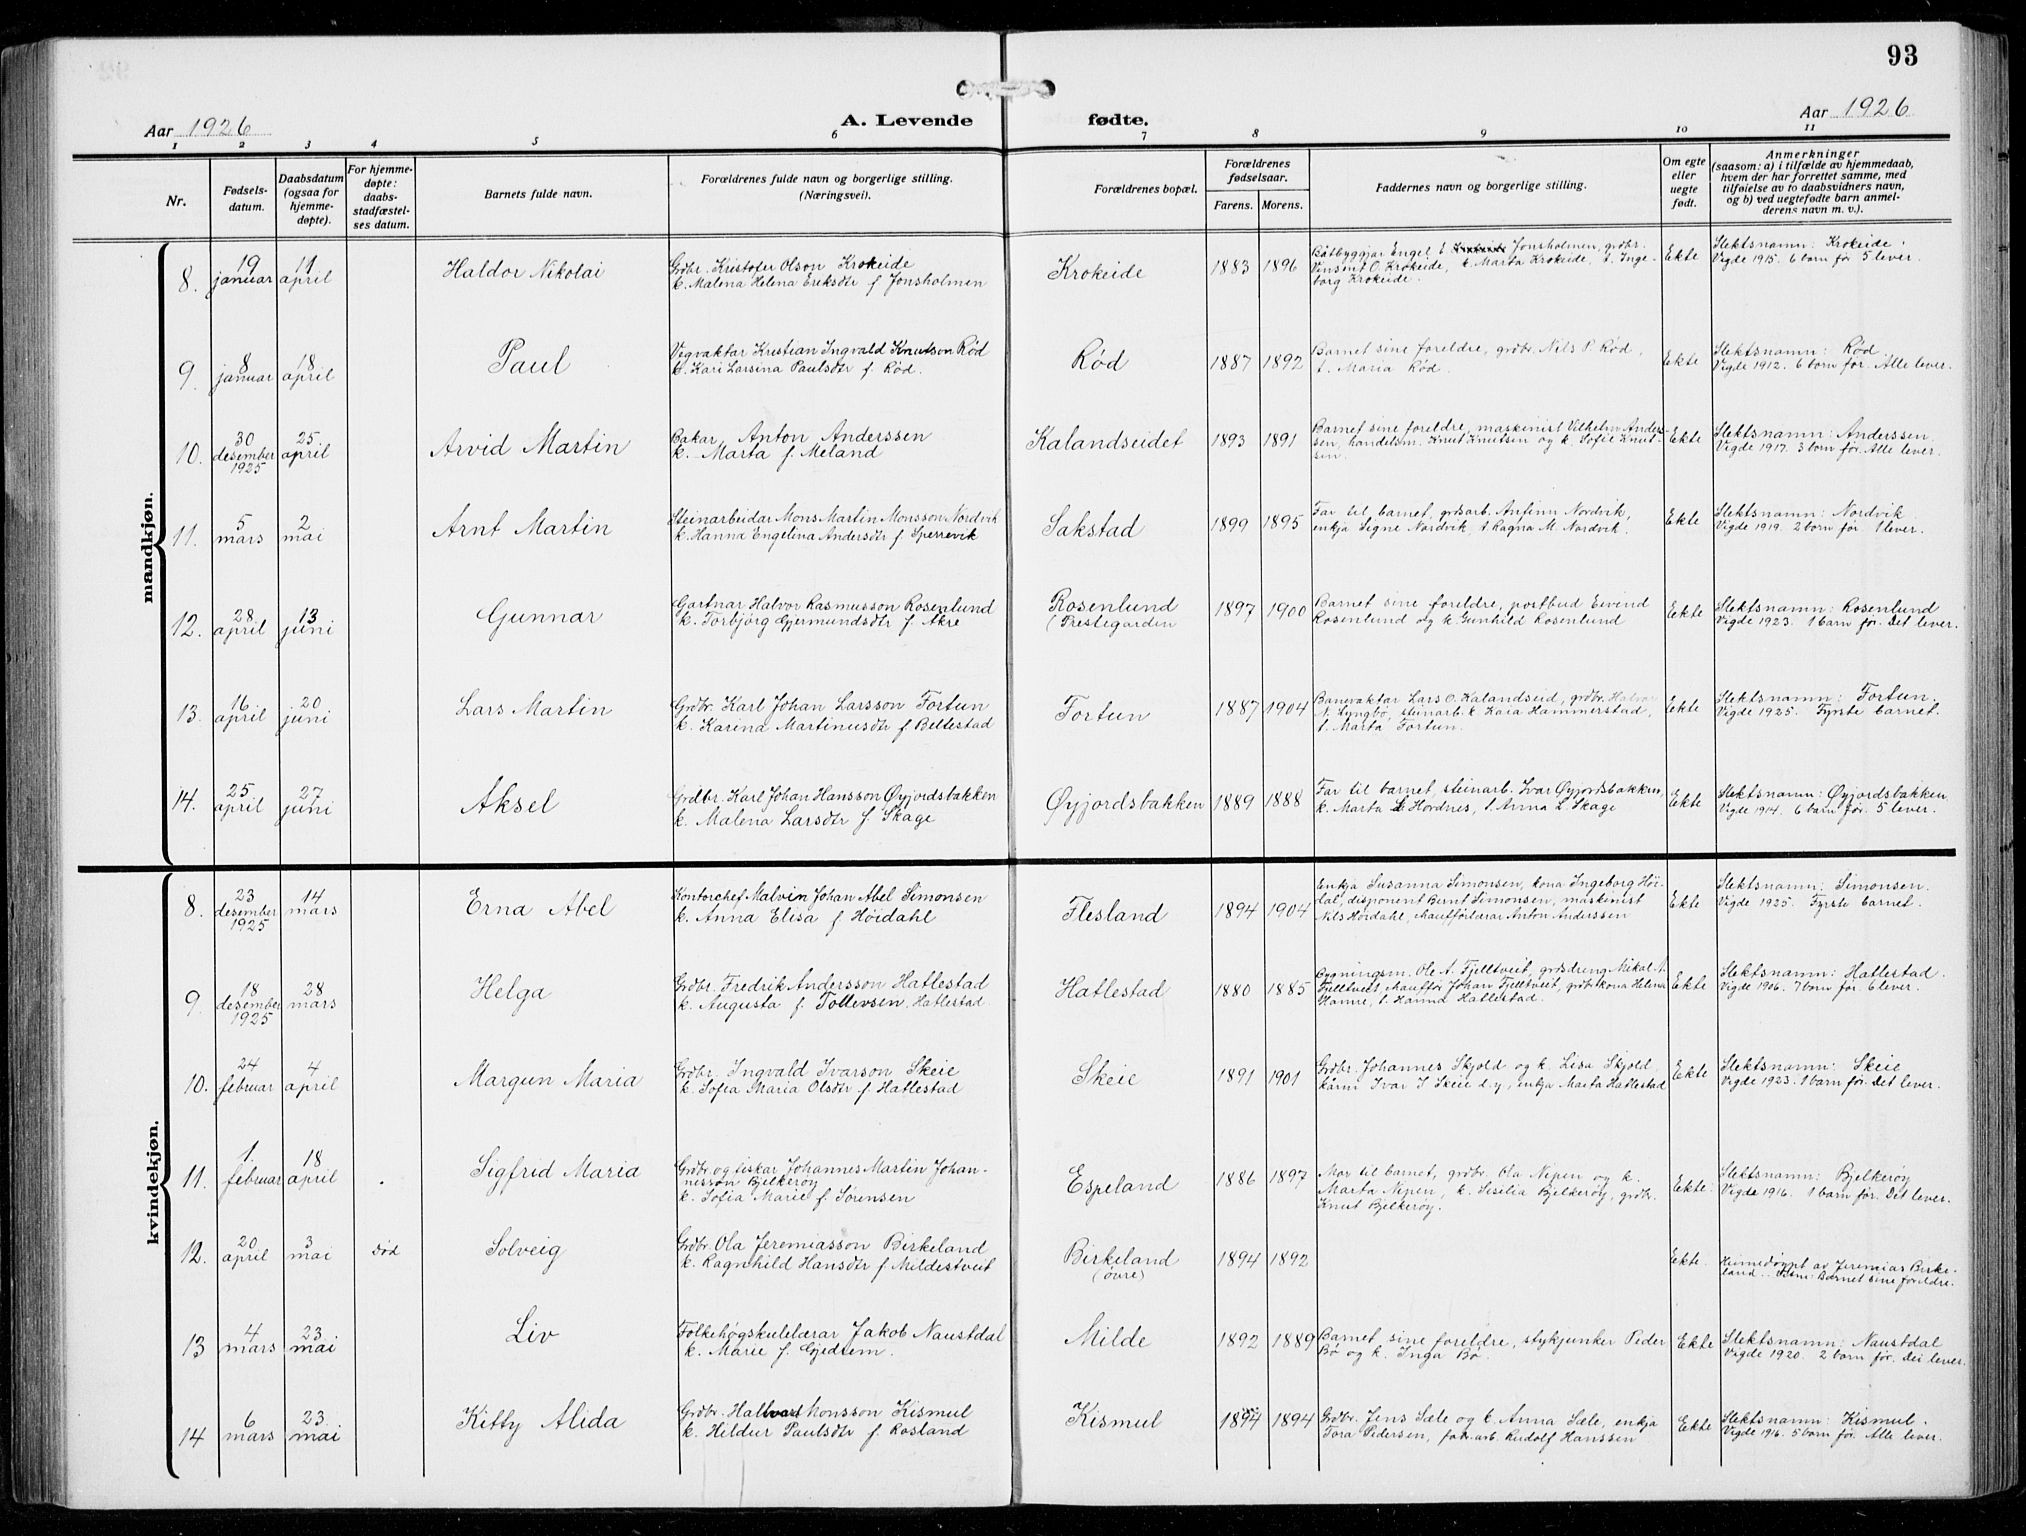 93
Aar 1926
A. Levende fødte.
Aar 1926
1 2 3 4 5 6 7 8 9 10 11
Nr.
Fødsels-
datum.
Daabsdatum
(ogsaa for
hjemme-
døpte).
For hjemme-
døpte:
daabs-
stadfæstel-
ses datum.
Barnets fulde navn.
Forældrenes fulde navn og borgerlige stilling.
(Næringsvei).
Forældrenes bopæl.
Forældrenes
fødselsaar.
Farens. Morens.
Faddernes navn og borgerlige stilling.
Om egte
eller
uegte
født.
Anmerkninger
(saasom: a) i tilfælde av hjemmedaab,
hvem der har forrettet samme, med
tilføielse av to daabsvidners navn,
og b) ved uegtefødte barn anmel-
derens navn m. v.).
mandkjøn.
8.
19
januar
11
april
Haldor Nikolai
Grdbr. Kristofer Olson Krokeide
k. Malena Helena Eriksdtr f. Jonsholmen
Krokeide
1883 1896
Båtbyggjar Engel E Jonsholmen, grdbr.
Vinsent O. Krokeide, k. Marta Krokeide, t. Inge-
borg Krokeide.
Ekte
Slektsnamn: Krokeide.
Vigde 1915. 6 born før 5 lever.
9.
8
januar
18
april
Paul
Vegvaktar Kristian Ingvald Knutson Rød
k. Kari Larsina Paulsdtr f. Rød.
Rød
1887 1892
Barnet sine foreldre, grdbr. Nils P. Rød,
t. Maria Rød.
Ekte
Slektsnamn: Rød
Vigde 1912. 6 born før. Alle lever.
10.
30
desember
1925
25
april
Arvid Martin
Bakar Anton Anderssen
k. Marta f. Meland
Kalandseidet
1893 1891
Barnet sine foreldre, maskinist Vilhelm Anders-
sen, handelsm. Knut Knutsen og k. Sofie Knut-
sen.
Ekte
Slektsnamn: Anderssen.
Vigde 1917. 3 born før. Alle lever.
11.
5
mars
2
mai
Arnt Martin
Steinarbeidar Mons Martin Monsson Nordvik
k. Hanna Engelina Andersdtr f. Sperrevik
Sakstad
1899 1895
Far til barnet, grdsarb. Anfinn Nordvik,
enkja Signe Nordvik, t. Ragna M. Nordvik.
Ekte
Slektsnamn: Nordvik
Vigde 1919. 2 born før 1 lever.
12.
28
april
13
juni
Gunnar
Gartnar Halvor Rasmusson Rosenlund
k. Torbjørg Gjermundsdtr f. Akre
Rosenlund
(Prestegarden
1897 1900
Barnet sine foreldre, postbud Eivind
Rosenlund og k. Gunhild Rosenlund
Ekte
Slektsnamn: Rosenlund
Vigde 1923. 1 barn før. Det lever.
13.
16
april
20
juni
Lars Martin
Grdbr. Karl Johan Larsson Fortun
k. Karina Martinusdtr f. Beltestad
Fortun
1887 1904
Banevaktar Lars O. Kalandseid, grdbr. Halvor
N. Lyngbø, steinarb. k. Kaia Hammerstad,
t. Marta Fortun.
Ekte
Slektsnamn: Fortun.
Vigde 1925. Fyrste barnet.
14.
25
april
27
juni
Aksel
Grdbr. Karl Johan Hansson Øyjordsbakken
k. Malena Larsdtr f. Skage
Øyjordsbakken
1889 1888
Far til barnet, steinarb. Ivar Øyjordsbakken,
k. Marta Hordnes, t. Anna L. Skage
Ekte
Slektsnamn: Øyjordsbakken
Vigde 1914. 6 born før. 5 lever.
kvindekjøn.
8.
23
desember
1925
14
mars
Erna Abel
Kontorchef Malvin Johan Abel Simonsen
k. Anna Elisa f. Høidahl
Flesland
1894 1904
Enkja Susanna Simonsen, kona Ingeborg Høi-
dal, disponent Bernt Simonsen, maskinist
Nils Høidahl, chaufførlærar Anton Anderssen
Ekte
Slektsnamn: Simonsen.
Vigde 1925. Fyrste barnet.
9.
18
desember
1925
28
mars
Helga
Grdbr. Fredrik Andersson Hatlestad
k. Augusta f. Tollevsen. Hatlestad
Hatlestad
1880 1885
Bygningsm. Ole A. Fjelltveit, grdsdreng Mikal A.
Fjelltveit, chauffør Johan Fjelltveit, grdbrkona Helena
Hamre, t. Hanna Hatlestad.
Ekte
Slektsnamn: Hatlestad.
Vigde 1906. 7 born før. 6 lever.
10.
24
februar
4
april
Margun Maria
Grdbr. Ingvald Ivarson Skeie
k. Sofia Maria Olsdtr f. Hatlestad
Skeie
1891 1901
Grdbr. Johannes Skjold og k. Lisa Skjold,
kårm. Ivar J Skeie d.y, enkja Marta Hatlestad
Ekte
Slektsnamn: Skeie
Vigde 1923. 1 barn før. Det lever.
11.
1.
februar
18
april
Sigfrid Maria
Grdbr. og fiskar Johannes Martin Johan-
nesson Bjelkerøy
k. Sofia Marie f. Sørensen
Espeland
1886 1897
Mor til barnet, grdbr. Ola Nipen og k.
Marta Nipen, k. Sesilia Bjelkerøy, grdbr.
Knut Bjelkerøy.
Ekte
Slektsnamn: Bjelkerøy
Vigde 1916. 1 barn før. Det lever.
12.
20
april
3
mai
død
Solveig
Grdbr. Ola Jeremiasson Birkeland
k. Ragnhild Hansdtr f. Mildestveit
Birkeland
(øvre)
1894 1892
Ekte.
Heimedøypt av Jeremias Birke-
land. Barnet sine foreldre.
13
4
mars
23
mai
Liv
Folkehøgskulelærar Jakob Naustdal
k. Marie f. Gjedrem.
Milde
1892 1889
Barnet sine foreldre, stykjunker Peder
Bø og k. Inga Bø.
Ekte
Slektsnamn: Naustdal
Vigde 1920. 2 born før. Dei lever.
14
6
mars
23
mai
Kitty Alida
Grdbr. Hallvard Monsson Kismul
k. Hildur Paulsdtr f. Rosland
Kismul
1894 1894
Grdbr. Jens Sæle og k. Anna Sæle, enkja
Tora Pedersen, fabr.arb. Rudolf Hanssen
Ekte
Slektsnamn: Kismul.
Vigde 1916. 5 born før. Alle lever.